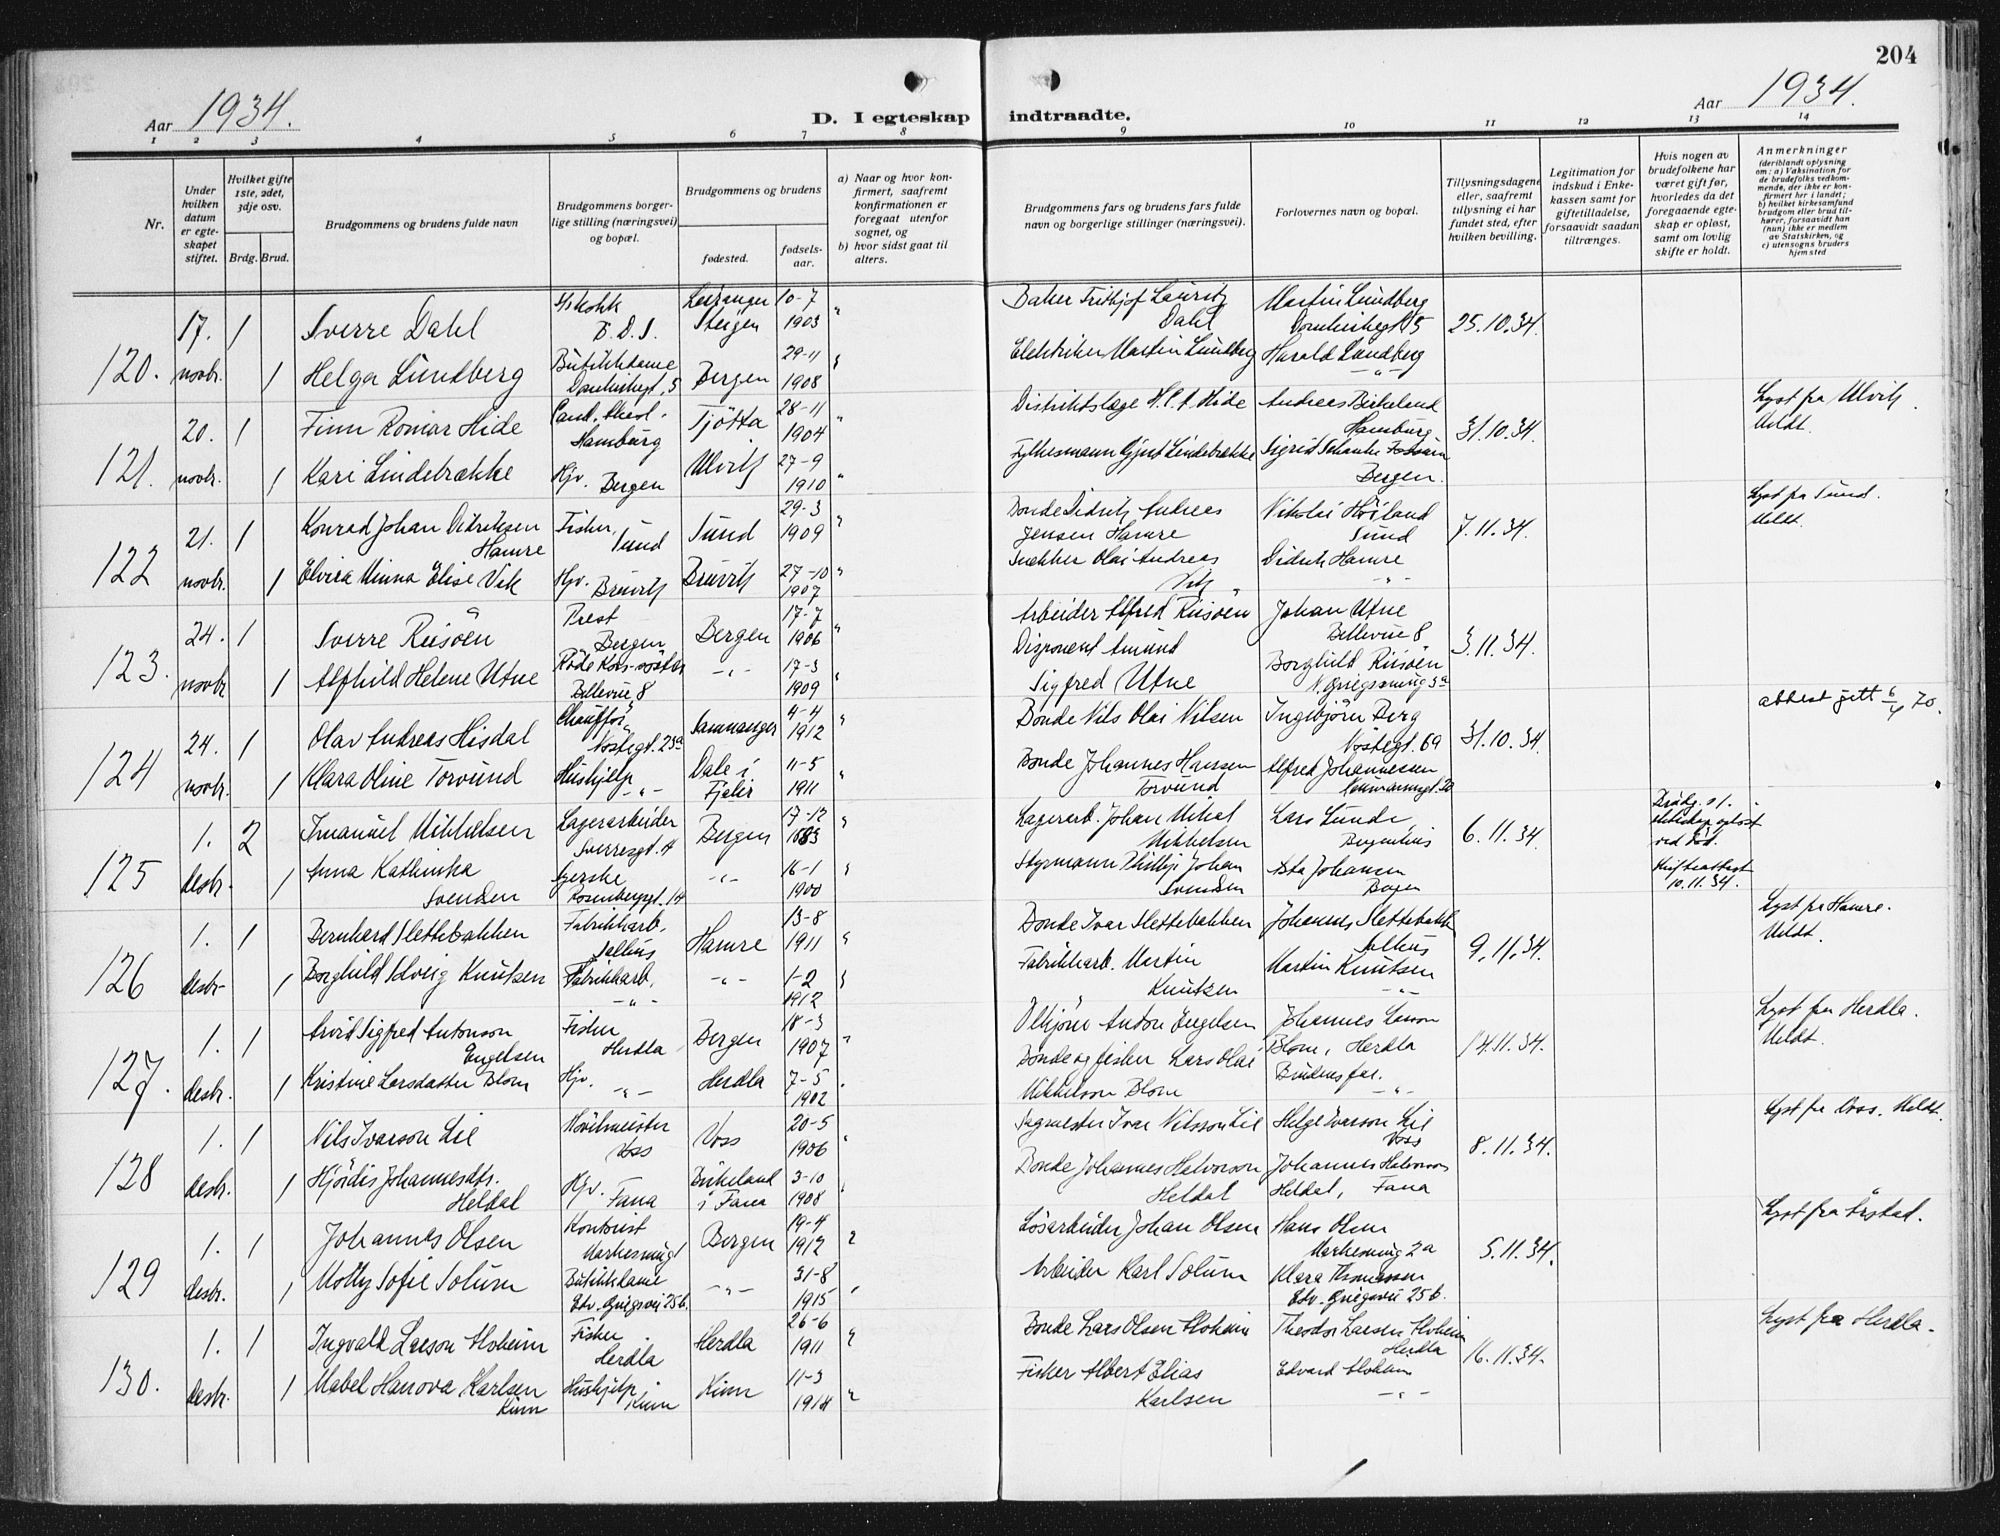 204
Aar 1934.
D. I egteskap indtraadte.
Aar 1934.
1 2 3 4 5 6 7 8 9 10 11 12 13 14
Nr.
Under hvilken datum er egteskapet stiftet.
Hvilket gifte 1ste, 2det, 3dje osv.
Brdg. Brud.
Brudgommens og brudens fulde navn
Brudgommens borgerlige stilling (næringsvei) og bopæl.
Brudgommens og brudens
fødested.
fødselsaar.
a) Naar og hvor konfirmert, saafremt konfirmationen er foregaat utenfor sognet, og
b) hvor sidst gaat til alters.
Brudgommens fars og brudens fars fulde navn og borgerlige stillinger (næringsvei).
Forlovernes navn og bopæl.
Tillysningsdagene eller, saafremt tillysning ei har fundet sted, efter hvilken bevilling.
Legitimation for indskud i Enkekassen samt for giftetilladelse, forsaavidt saadan tiltrænges.
Hvis nogen av brudefolkene har været gift før, hvorledes da det foregaaende egteskap er opløst, samt om lovlig skifte er holdt.
Anmerkninger
(deriblandt oplysning om: a) Vaksination for de brudefolks vedkommende, der ikke er konfirmert her i landet; b) hvilket kirkesamfund brudgom eller brud tilhører, forsaavidt han (hun) ikke er medlem av Statskirken, og c) utensogns bruders hjemsted
120. 17. novbr. 1 Sverre Dahl B.D.S. Steigen 10-7 1903 " Baker Frithjof Lauritz Dahl Martin Lundberg 5 25.10.34
1 Helga Lundberg Butikkdame 5 Bergen 29-11 1908 " Elektriker Martin Lundberg Harald Lundberg -"-
121. 20. novbr. 1 Finn Romar Hide Cand. theol. Hamburg Tjötta 28-11 1904 " Distriktslæge Hide Andreas Birkeland Hamburg 31.10.34. Lyst fra Ulvik. Meldt.
1 Kari Lindebrække Hjv. Bergen Ulvik 27-9 1910 " Fylkesmann Gjert Lindebrække Sigrid Bergen.
122 21. novbr. 1 Konrad Johan Didriksen Hamre Fisker, Sund Sund 29-3 1909 " Bonde Didrik Andreas Jensen Hamre Nikolai Höiland Sund 7.11.34. Lyst fra Sund. Meldt.
1 Elvira Minna Elise Vik Hjv. Bruvik Bruvik 27-10 1907 " Snekker Olai Andreas Vik Didrik Hamre -"-
123. 24. novbr. 1 Sverre Riisöen Prest Bergen Bergen 17-7 1906 " Arbeider Alfred Riisöen Johan Utne Bellevue 8 3.11.34.
1 Alfhild Helene Utne Röde Kors-söster Bellevue 8 -"- 17-3 1909 " Disponent Amund Sigfred Utne Borghild Riisöen
124 24. novbr. 1 Olav Andreas Hisdal Chaufför, Nöstegt. 23a Samnanger 4-4 1912 " Bonde Nils Olai Nilsen Ingebjörn Berg Nöstegt. 69 31.10.34. attest gitt 6/4 70.
1 Klara Oline Torvund Hushjelp -"- Dale i Fjaler 11-5 1911 " Bonde Johannes Hansen Torvund Alfred Johannessen Neumannsgt. 20
125 1. desbr. 2 Imanuel Mikkelsen Lagerarbeider Sverresgt. 4 Bergen 17-12 1883 " Lagerarb. Johan Mikal Mikkelsen Lars Lunde 6.11.34. Brudg. s 1. ekteskap opløst ved död. Skifteattest 10.11.34.
1 Anna Kathinka Svendsen Rosenbergsgt. 14 -"- 16-1 1900 " Styrmann Phillip Johan Svendsen Asta Johansen
126 1. desbr. 1 Bernhard Slettebakken Fabrikkarb. Salhus Hamre 13-8 1911 " Bonde Ivar Slettebakken Johannes Slettebakk Salhus 9.11.34. Lyst fra Hamre. Meldt.
1 Borghild Solveig Knutsen Fabrikkarb. -"- -"- 1-2 1912 " Fabrikkarb. Martin Knutsen Martin Knutsen -"-
127. 1. desbr. 1 Arvid Sigfred Antonson Engelsen Fisker Herdla Bergen 18-3 1907 " Anton Engelsen Johannes Larson Blom, Herdla 14.11.34. Lyst fra Herdla. Meldt.
1 Kristine Larsdatter Blom Hjv. -"- Herdla 7-5 1902 " Bonde og fisker Lars Olai Mikkelson Blom Brudens far. -"-
128 1. desbr. 1 Nils Ivarson Lil Voss Voss 20-5 1906 " Ivar Nilsson Lil Helge Ivarson Lil Voss 8.11.34. Lyst fra Voss. Meldt.
1 Hjördis Johannesdtr. Heldal Hjv. Fana Birkeland i Fana 3-10 1908 " Bonde Johannes Halvorson Heldal Johannes Halvorson Heldal, Fana
129 1. desbr. 1 Johannes Olsen Kontorist Bergen 19-4 1912 " Lösarbeider Johan Olsen Hans Olsen 2a 5.11.34. Lyst fra Årstad.
1 Molly Sofie Solum Butikkdame Edv. Griegsvei 25b. -"- 31-8 1915 " Arbeider Karl Solum Klara Thomassen Edv. Griegsvei 25b.
130. 1. desbr. 1 Ingvald Larson Hoheim Fisker Herdla Herdla 26-6 1911 " Bonde Lars Olsen Hoheim Theodor Larsen Hoheim Herdla 16.11.34. Lyst fra Herdla.
1 Mabel Hanova Karlsen Kinn Hushjelp, Kinn Kinn 11-3 1914 " Fisker Albert Elias Karlsen Edvard Hoheim -"-